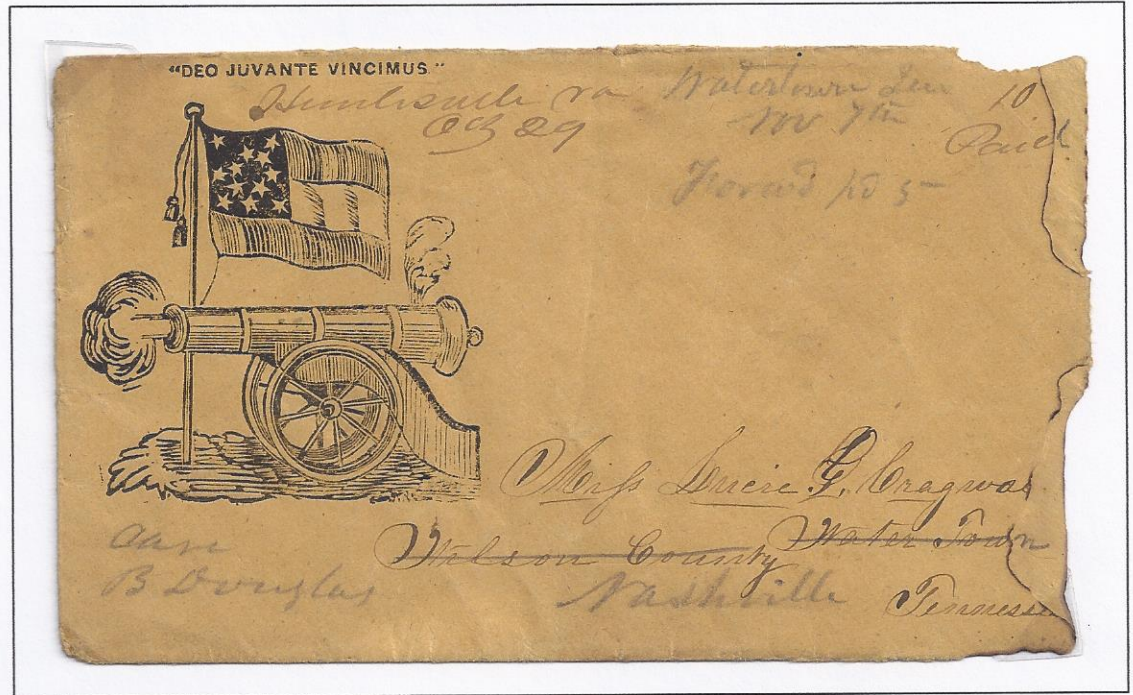 "DEO JUVANTE VINCIMUS."
Huntersville va
Oct 29
Watertown Ten
Nov 7th
10
Paid
Forwd Pd 5
Miss Lucie G. Cragwal
Water Town
Wilson County
Nashville
Tennessee
Care
B Douglas